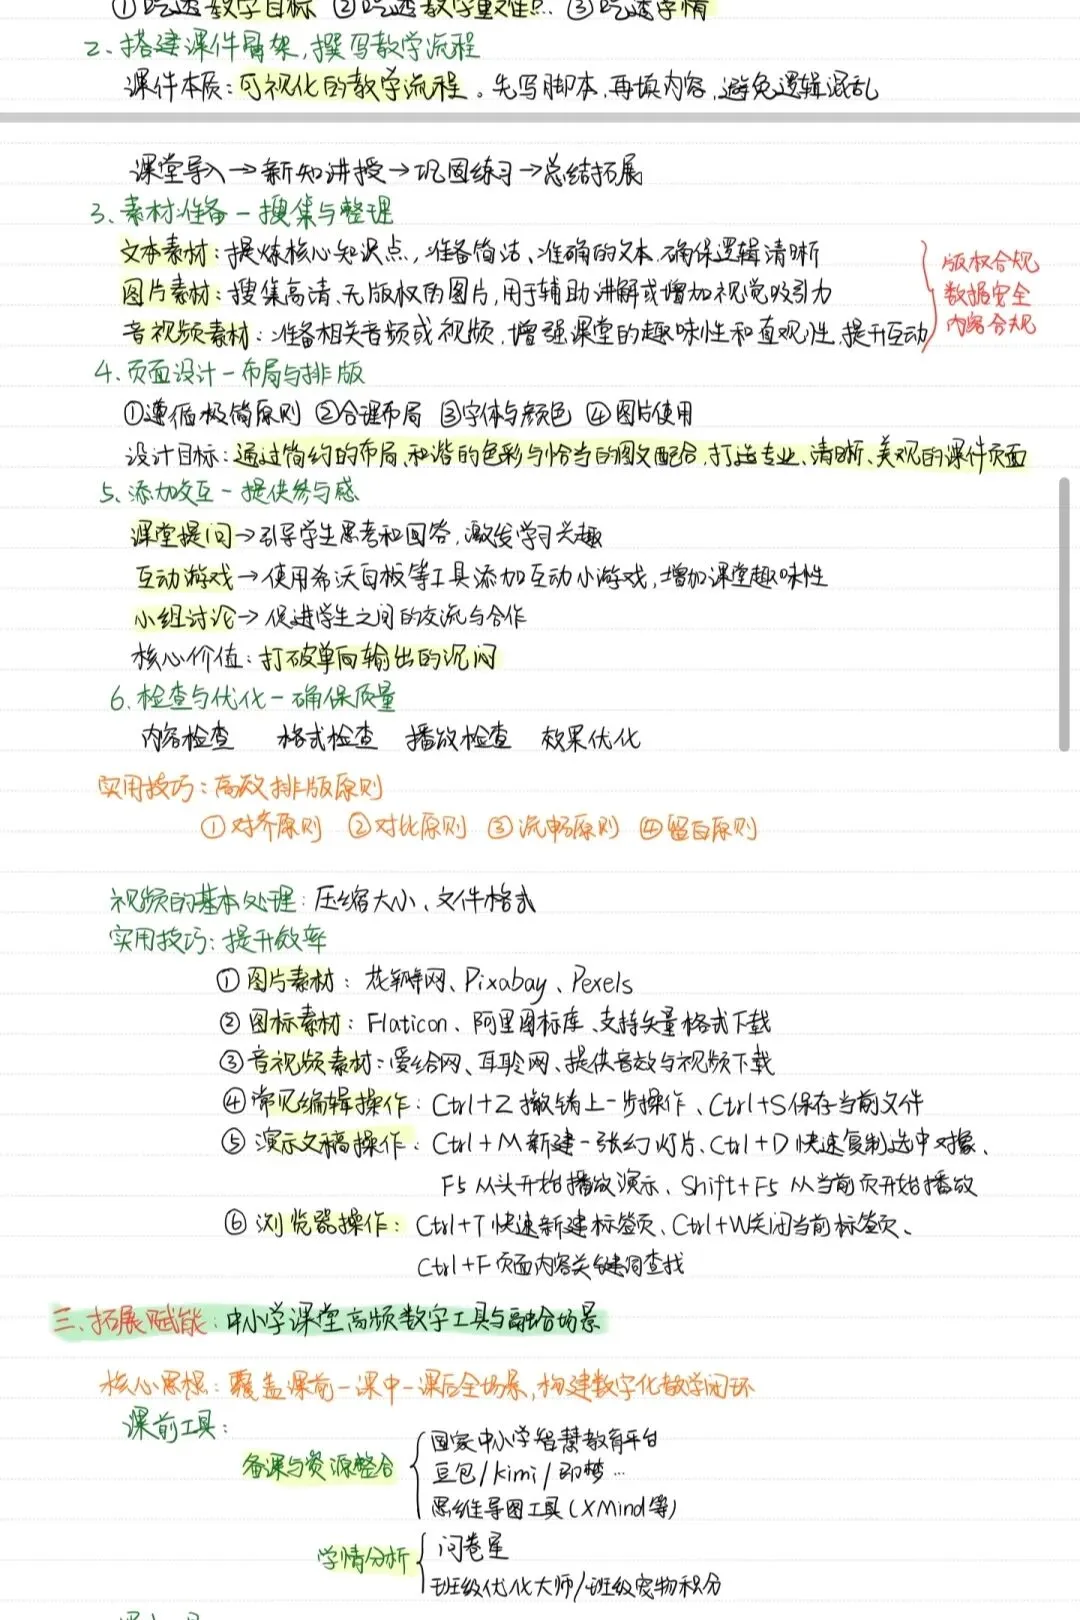 ①吃透教学目标 ②吃透教学重难点 ③吃透学情
2、搭建课件骨架,撰写教学流程
课件本质:可视化的教学流程。先写脚本,再填内容,避免逻辑混乱
课堂导入→新知讲授→巩固练习→总结拓展
3、素材准备-搜集与整理
文本素材:提炼核心知识点,准备简洁、准确的文本,确保逻辑清晰
图片素材:搜集高清、无版权的图片,用于辅助讲解或增加视觉吸引力
音视频素材:准备相关音频或视频,增强课堂的趣味性和直观性,提升互动
版权合规
数据安全
内容合规
4、页面设计-布局与排版
①遵循极简原则 ②合理布局 ③字体与颜色 ④图片使用
设计目标:通过简约的布局、和谐的色彩与恰当的图文配合,打造专业、清晰、美观的课件页面
5、添加交互-提供参与感
课堂提问→引导学生思考和回答,激发学习兴趣
互动游戏→使用希沃白板等工具添加互动小游戏,增加课堂趣味性
小组讨论→促进学生之间的交流与合作
核心价值:打破单向输出的沉闷
6、检查与优化-确保质量
内容检查 格式检查 播放检查 效果优化
实用技巧:高效排版原则
①对齐原则 ②对比原则 ③流畅原则 ④留白原则
视频的基本处理:压缩大小、文件格式
实用技巧:提升效率
①图片素材:花瓣网、Pixabay、Pexels
②图标素材:Flaticon、阿里图标库、支持矢量格式下载
③音视频素材:爱给网、耳聆网、提供音效与视频下载
④常见编辑操作:Ctrl+Z撤销上一步操作、Ctrl+S保存当前文件
⑤演示文稿操作:Ctrl+M新建一张幻灯片、Ctrl+D快速复制选中对象、
F5从头开始播放演示、Shift+F5从当前页开始播放
⑥浏览器操作:Ctrl+T快速新建标签页、Ctrl+W关闭当前标签页、
Ctrl+F页面内容关键词查找
三、拓展赋能:中小学课堂高频数字工具与融合场景
核心思想:覆盖课前-课中-课后全场景,构建数字化教学闭环
课前工具:
备课与资源整合
国家中小学智慧教育平台
豆包/kimi/即梦…
思维导图工具(XMind等)
学情分析
问卷星
班级优化大师/班级宠物积分